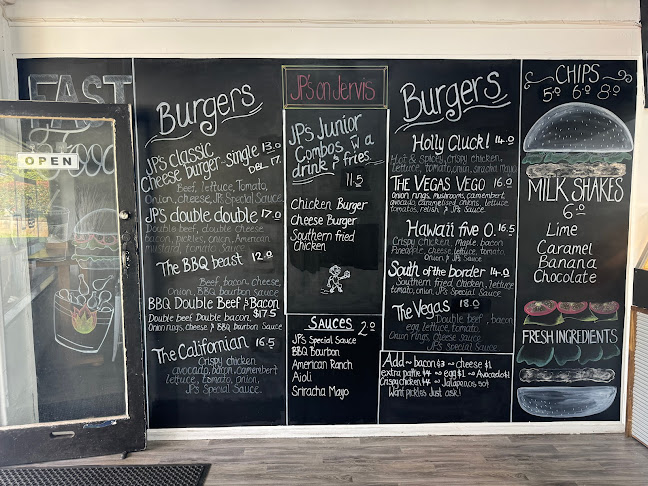 FAST
Food
OPEN
Burgers
JP's classic
cheese burger-single 13.0
DBL 17.
Beef, lettuce, tomato,
Onion, cheese, JP's Special Sauce
JP's double double 17.0
Beef, double cheese
bacon, pickles, onion, American
mustard, tomato sauce
The BBQ beast 12.0
Beef, bacon, cheese,
Onion, BBQ bourbon sauce
BBQ Double Beef & Bacon
$17.5
Double beef Double bacon,
Onion rings, cheese & BBQ Bourbon Sauce
The Californian 16.5
Crispy chicken,
avocado, bacon, camembert
lettuce, tomato, onion,
JP's Special Sauce
JP's on Jervis
JP's Junior
Combos w a
drink & fries.
11.5
Chicken Burger
Cheese Burger
Southern fried
Chicken
Sauces 2.0
JP's Special Sauce
BBQ Bourbon
American Ranch
Aioli
Sriracha Mayo
Burgers
Holly Cluck! 14.0
Hot & spicy, crispy chicken,
lettuce, tomato, onion, sriracha mayo
The Vegas Vego 16.0
Onion rings, mushrooms, camembert,
avocado, caramelised onions, lettuce
tomatoes, relish, & JP's Sauce
Hawaii five O. 16.5
Crispy chicken, maple, bacon
Pineapple, cheese, lettuce, tomato,
Onion & JP's Sauce
South of the border 14.0
Southern fried chicken, lettuce
tomato, onion, JP's Special Sauce
The Vegas 18.0
Double beef, bacon
egg, lettuce, tomato,
Onion rings, cheese sauce
JP's special Sauce
Add ~ bacon $3 ~ cheese $1
extra pattie $4 ~ egg $1 ~ Avocado $1
Crispy chicken $4 ~ Jalapenos 50¢
Want pickles Just ask!
CHIPS
5.0 6.0 8.0
MILK SHAKES
6.0
Lime
Caramel
Banana
Chocolate
FRESH INGREDIENTS